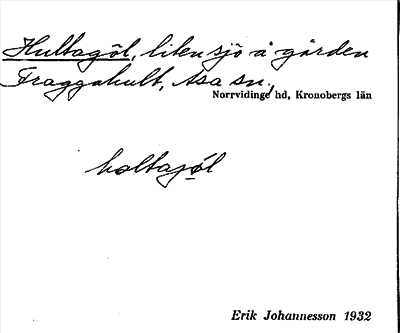 Hultagöl, liten sjö å gården
Fraggahult, Asa sn.,
Norrvidinge hd, Kronobergs län
holtagøl
Erik Johannesson 1932